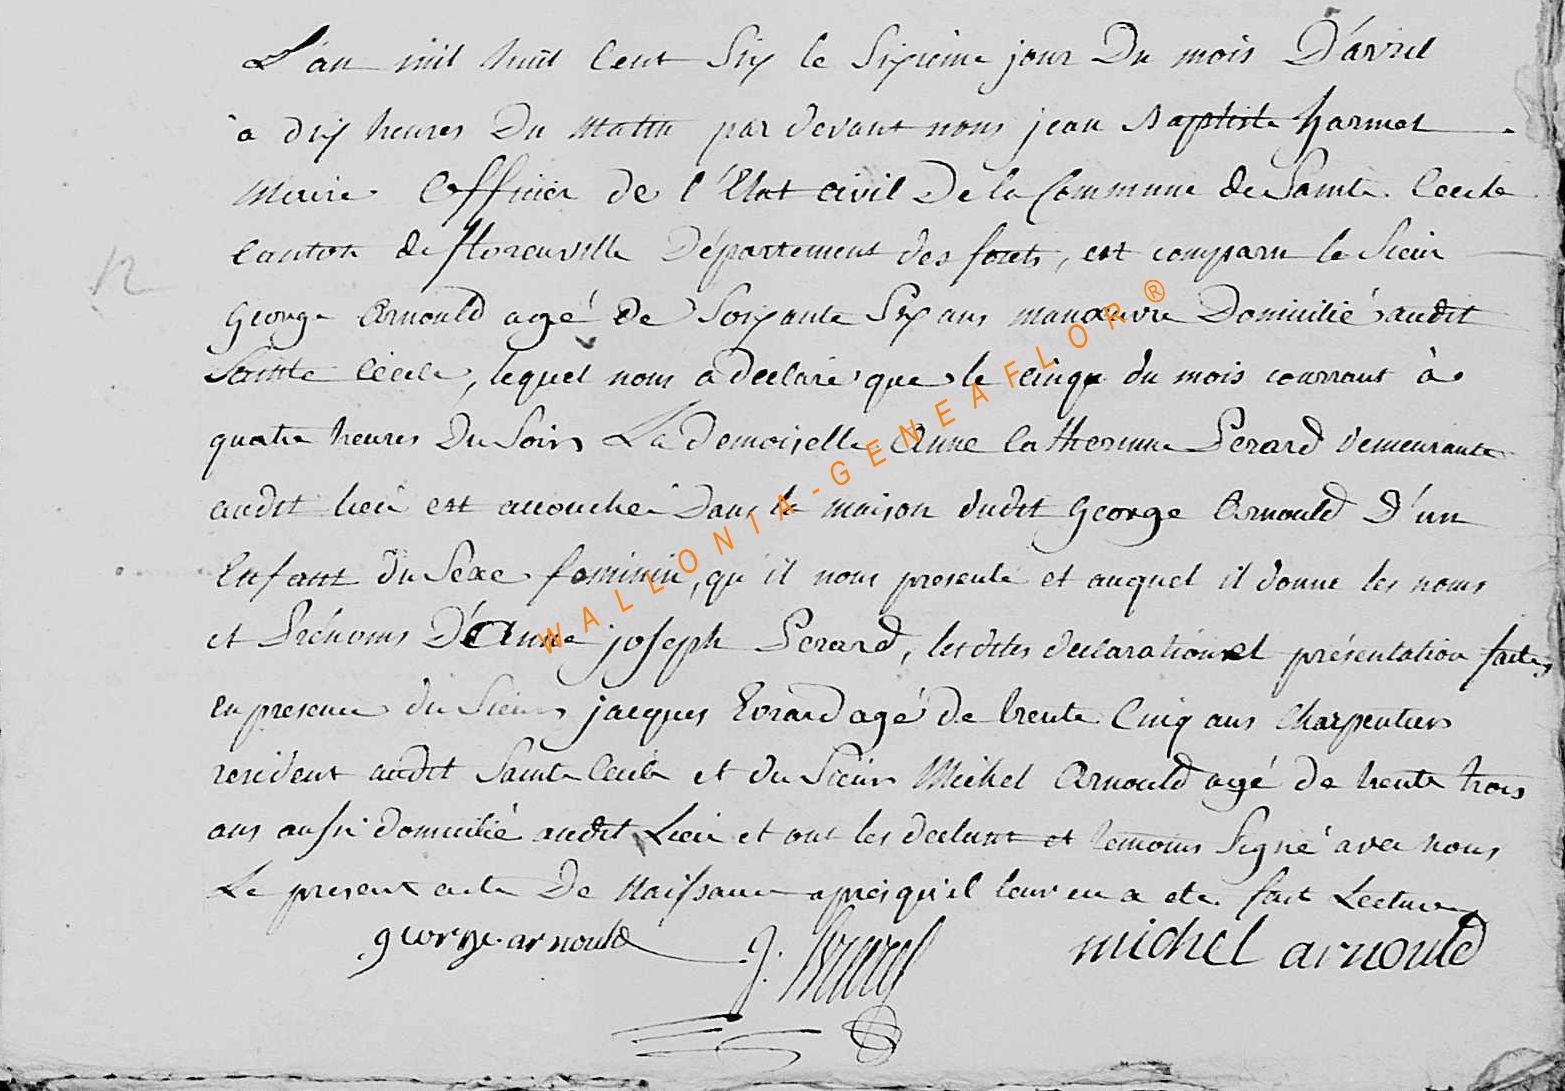 L'an mil huit Cent Six le Sixieme jour Du mois D'avril
a dix heures Du Matin par devant nous jean Baptiste harmel
Maire Officier de l'Etat civil De la Commune de Sainte Cecile
Canton de florenville Département des forets, est comparu le Sieur
George Arnould agé De Soixante Six ans manœuvre Domicilié audit
Sainte Cécile, lequel nous a declaré que le cinq du mois courrant à
quatre heures Du Soir La Demoiselle Anne Catherinne Perard demeurante
audit lieu est accouchée Dans la maison dudit George Arnould D'un
Enfant du Sexe feminin, qu'il nous presente et auquel il donne les noms
et Prénoms D'Anne joseph Perard, lesdites declaration et présentation faites
en presence du Sieur jacques Evrard agé De trente Cinq ans Charpentier
resident audit Sainte Cecile et du Sieur Michel Arnould agé De trente trois
ans aussi domicilié audit Lieu et ont les declarant et temoins Signé avec nous
Le present acte De Naissance apres qu'il leur en a ete fait Lecture
george arnould J. Evrard michel arnould
WALLONIA-GENEAFLOR®